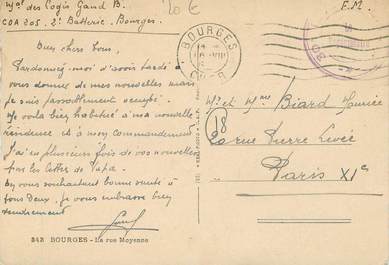 Mal des Logis Gaud B.
COA 205. 2e Batterie. Bourges.
20 €
F.M.
BOURGES
CHER
Bien chers tous,
Pardonnez-moi d'avoir tardé à
vous donner de mes nouvelles mais
je suis passablement occupé.
Me voilà bien habitué à ma nouvelle
résidence et à mon commandement
J'ai eu plusieurs fois de vos nouvelles
par les lettres de Papa.
En vous souhaitant bonne santé à
tous deux, je vous embrasse bien
tendrement
Mr et Mme Biard Maurice
18
rue Pierre Levée
Paris XIe
343 BOURGES - La rue Moyenne